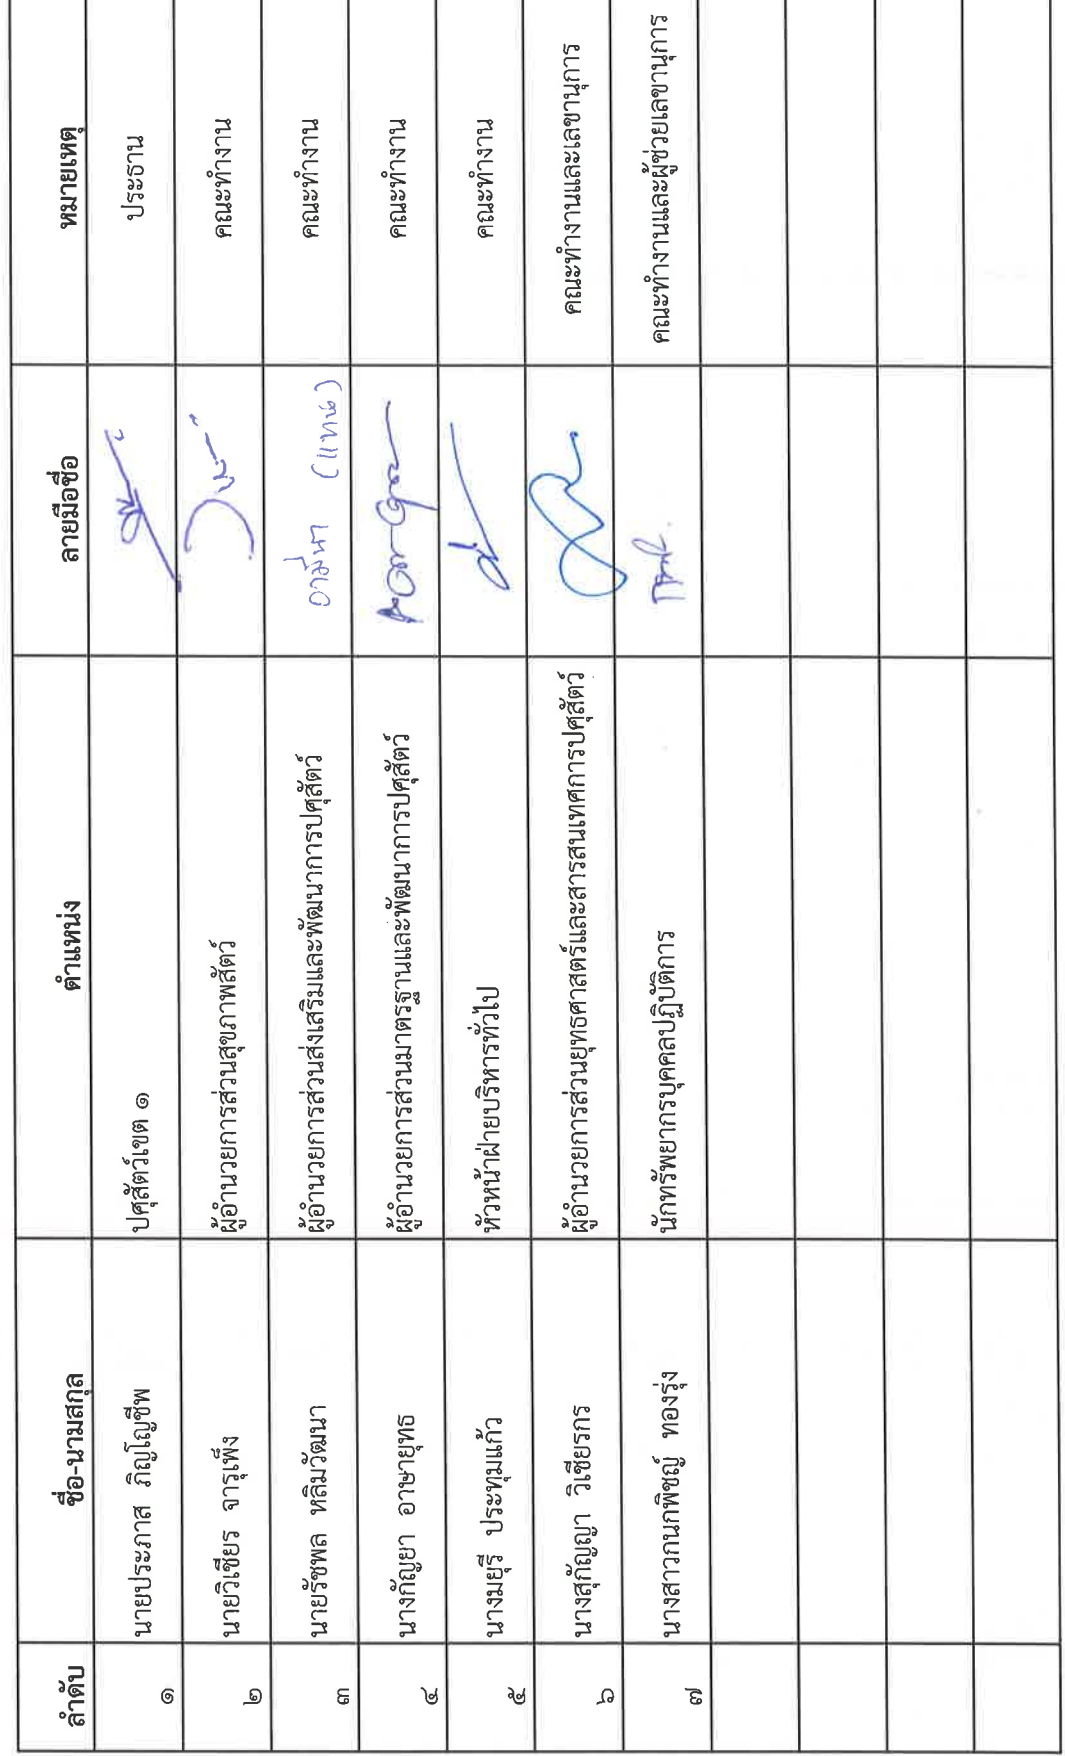 ลำดับ ชื่อ-นามสกุล ตำแหน่ง ลายมือชื่อ หมายเหตุ
๑ นายประภาส ภิญโญชีพ ปศุสัตว์เขต ๑ ประธาน
๒ นายวิเชียร จารุเพ็ง ผู้อำนวยการส่วนสุขภาพสัตว์ คณะทำงาน
๓ นายรัชพล หลิมวัฒนา ผู้อำนวยการส่วนส่งเสริมและพัฒนาการปศุสัตว์ อามีนา (แทน) คณะทำงาน
๔ นางกัญยา อาษายุทธ ผู้อำนวยการส่วนมาตรฐานและพัฒนาการปศุสัตว์ คณะทำงาน
๕ นางมยุรี ประทุมแก้ว หัวหน้าฝ่ายบริหารทั่วไป คณะทำงาน
๖ นางสุกัญญา วิเชียรกร ผู้อำนวยการส่วนยุทธศาสตร์และสารสนเทศการปศุสัตว์ คณะทำงานและเลขานุการ
๗ นางสาวกนกพิชญ์ ทองรุ่ง นักทรัพยากรบุคคลปฏิบัติการ คณะทำงานและผู้ช่วยเลขานุการ